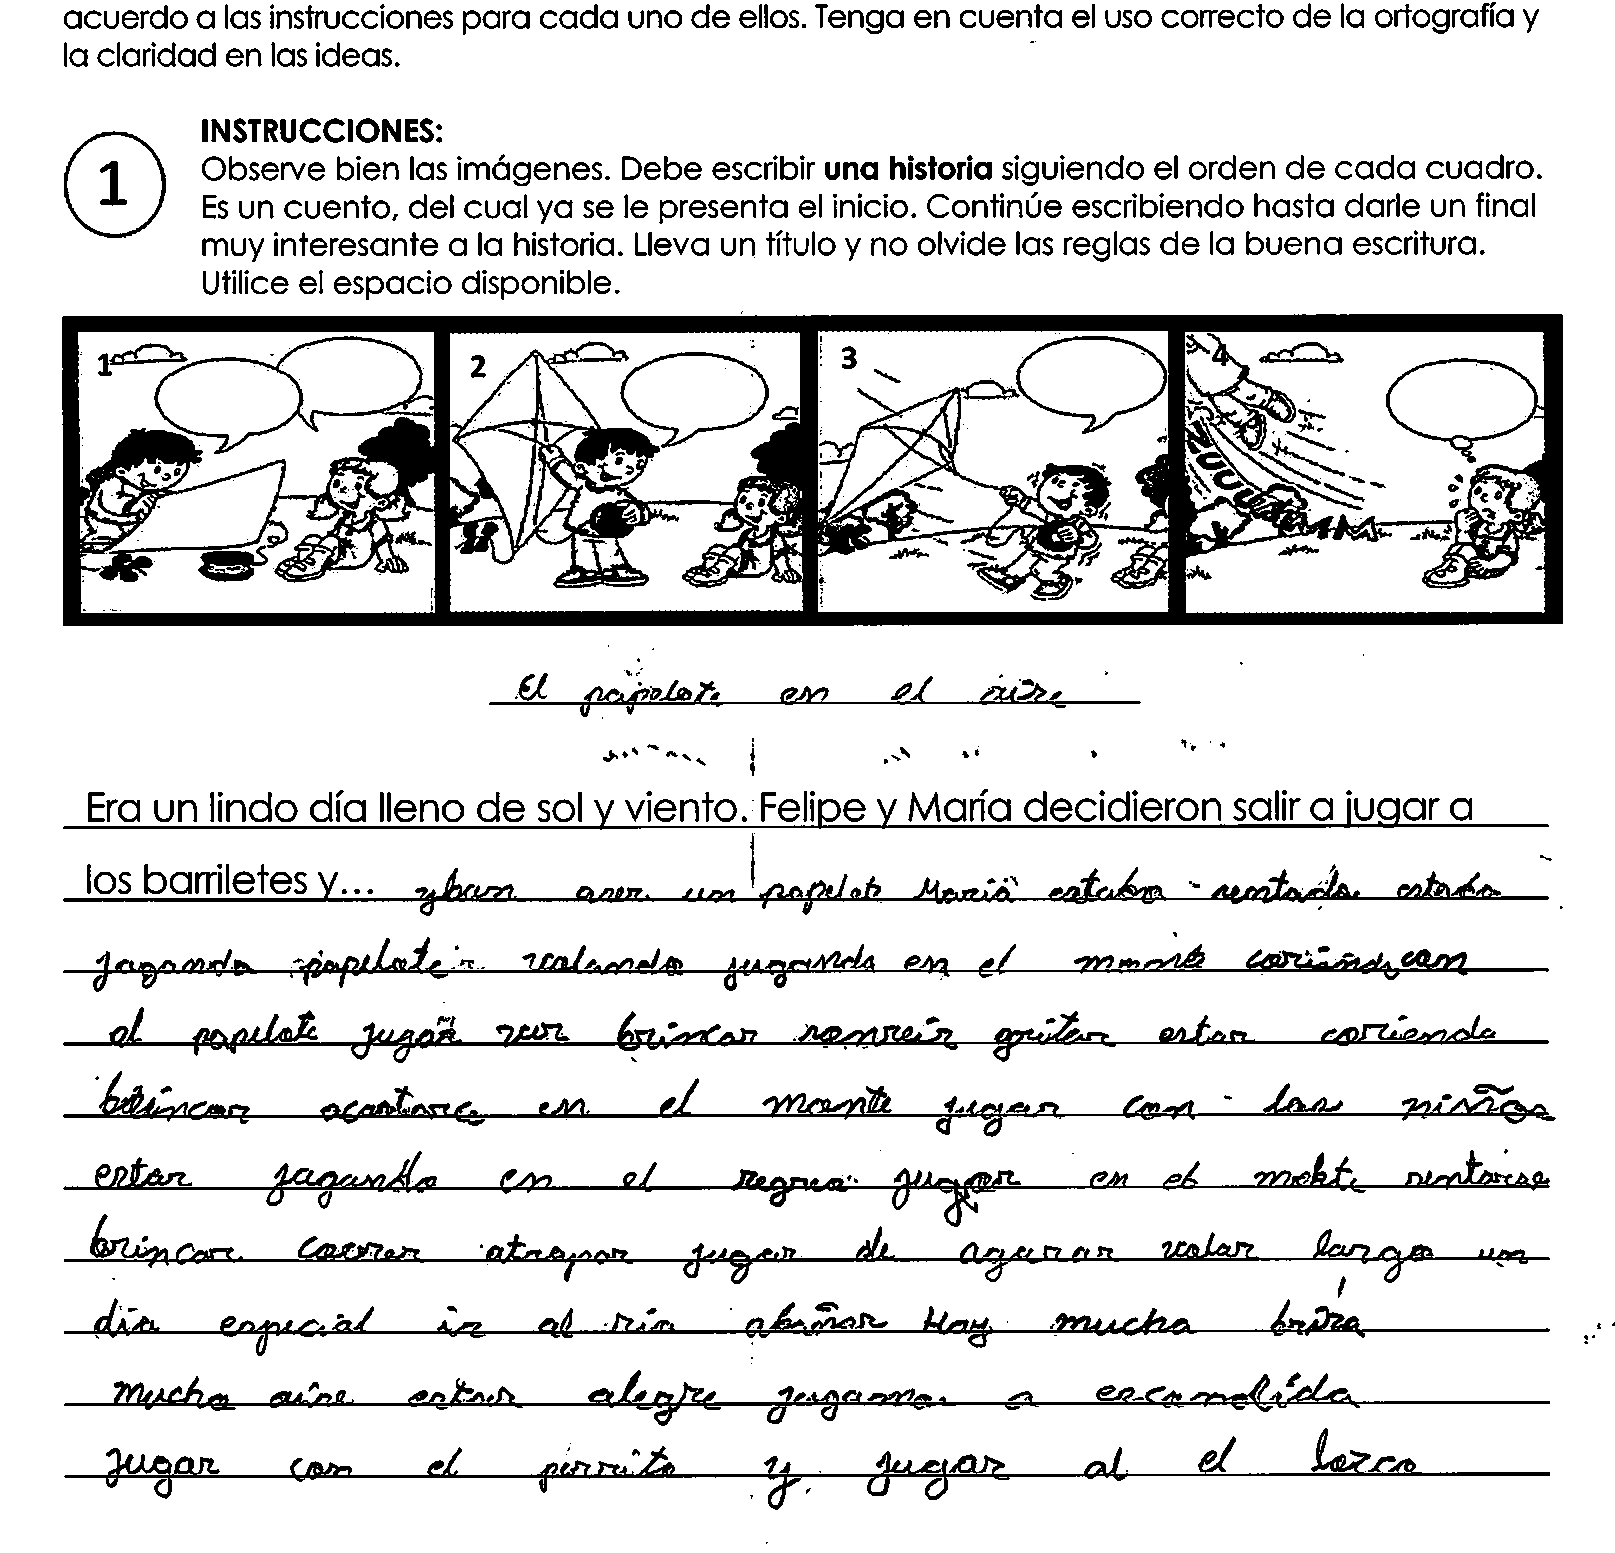 acuerdo a las instrucciones para cada uno de ellos. Tenga en cuenta el uso correcto de la ortografía y
la claridad en las ideas.
1
INSTRUCCIONES:
Observe bien las imágenes. Debe escribir una historia siguiendo el orden de cada cuadro.
Es un cuento, del cual ya se le presenta el inicio. Continúe escribiendo hasta darle un final
muy interesante a la historia. Lleva un título y no olvide las reglas de la buena escritura.
Utilice el espacio disponible.
1 2 3 4
El papelote en el aire
Era un lindo día lleno de sol y viento. Felipe y María decidieron salir a jugar a
los barriletes y... yban aser un papelote María estaba sentada estaba
jugando papelote volando jugando en el con
al papelote jugar brincar sonreir gritar estar corriendo
brincar acostarce en el monte jugar con los niños
estar jugando en el jugar en el sentarse
brincar correr atrapar jugar de agarar volar largo un
dia especial ir al rio abañar Hay mucha briza
mucho aire estar alegre jugamo a escondida
jugar con el perrito y jugar al el